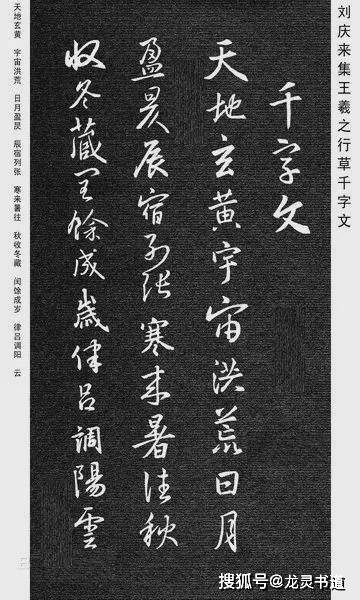 刘庆来集王羲之行草千字文
千字文
天地玄黄宇宙洪荒日月
盈昃辰宿列張寒来暑往秋
收冬藏閏餘成歲律吕調陽雲
天地玄黄 宇宙洪荒 日月盈昃 辰宿列张 寒来暑往 秋收冬藏 闰馀成岁 律吕调阳 云
搜狐号@龙灵书道